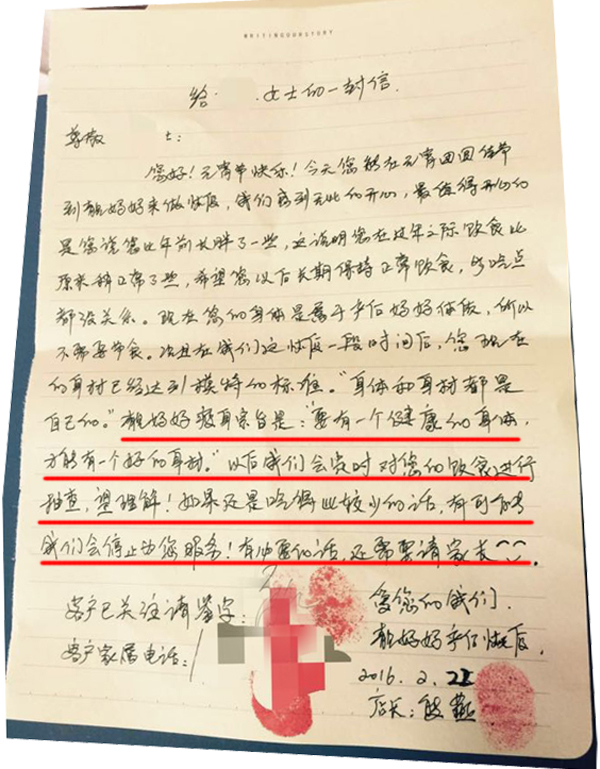 WRITINGOURSTORY
给 女士的一封信.
尊敬 士:
您好！元宵节快乐！今天您能在元宵团圆佳节
到靓妈妈来做恢复，我们感到无比的开心，最值得开心的
是您说您比年前长胖了一些，这说明您在过年之际饮食比
原来稍正常了些，希望您以后长期保持正常饮食，多吃点
都没关系。现在您的身体是属于产后妈妈体质，所以
不需要节食。况且在我们这恢复一段时间后，您现在
的身材已经达到模特的标准。"身体和身材都是
自己的。"靓妈妈瘦身宗旨是："要有一个健康的身体，
才能有一个好的身材。"以后我们会定时对您的饮食进行
抽查，望理解！如果还是吃得比较少的话，有可能
我们会停止为您服务！有必要的话，还需要请家长^^。
客户已关注请签字：
客户家属电话：
爱您的我们.
靓妈妈产后恢复.
2016.2.22
店长：熊